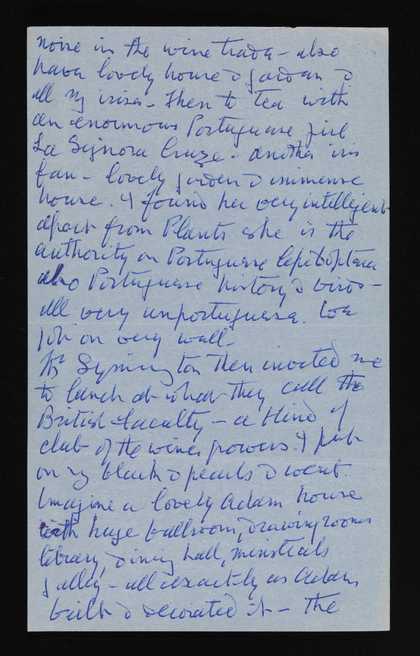 noise in the wine trade - also
have lovely house & garden &
all my irises. Then to tea with
an enormous Portuguese girl
La Signora Cruze. Another iris
fan - lovely garden & immense
house. I found her very intelligent
apart from Plants she is the
authority on Portuguese lepidoptera
also Portuguese history & birds -
all very unportuguese. We
got on very well.
Mr Symington then invited me
to lunch at what they call the
British Faculty - a kind of
club of the wine growers. I put
on my black & pearls & went.
Imagine a lovely Adam house
with huge ballroom, drawing rooms
library, dining hall, minstrels
galley - all exactly as Adam
built & decorated it - the